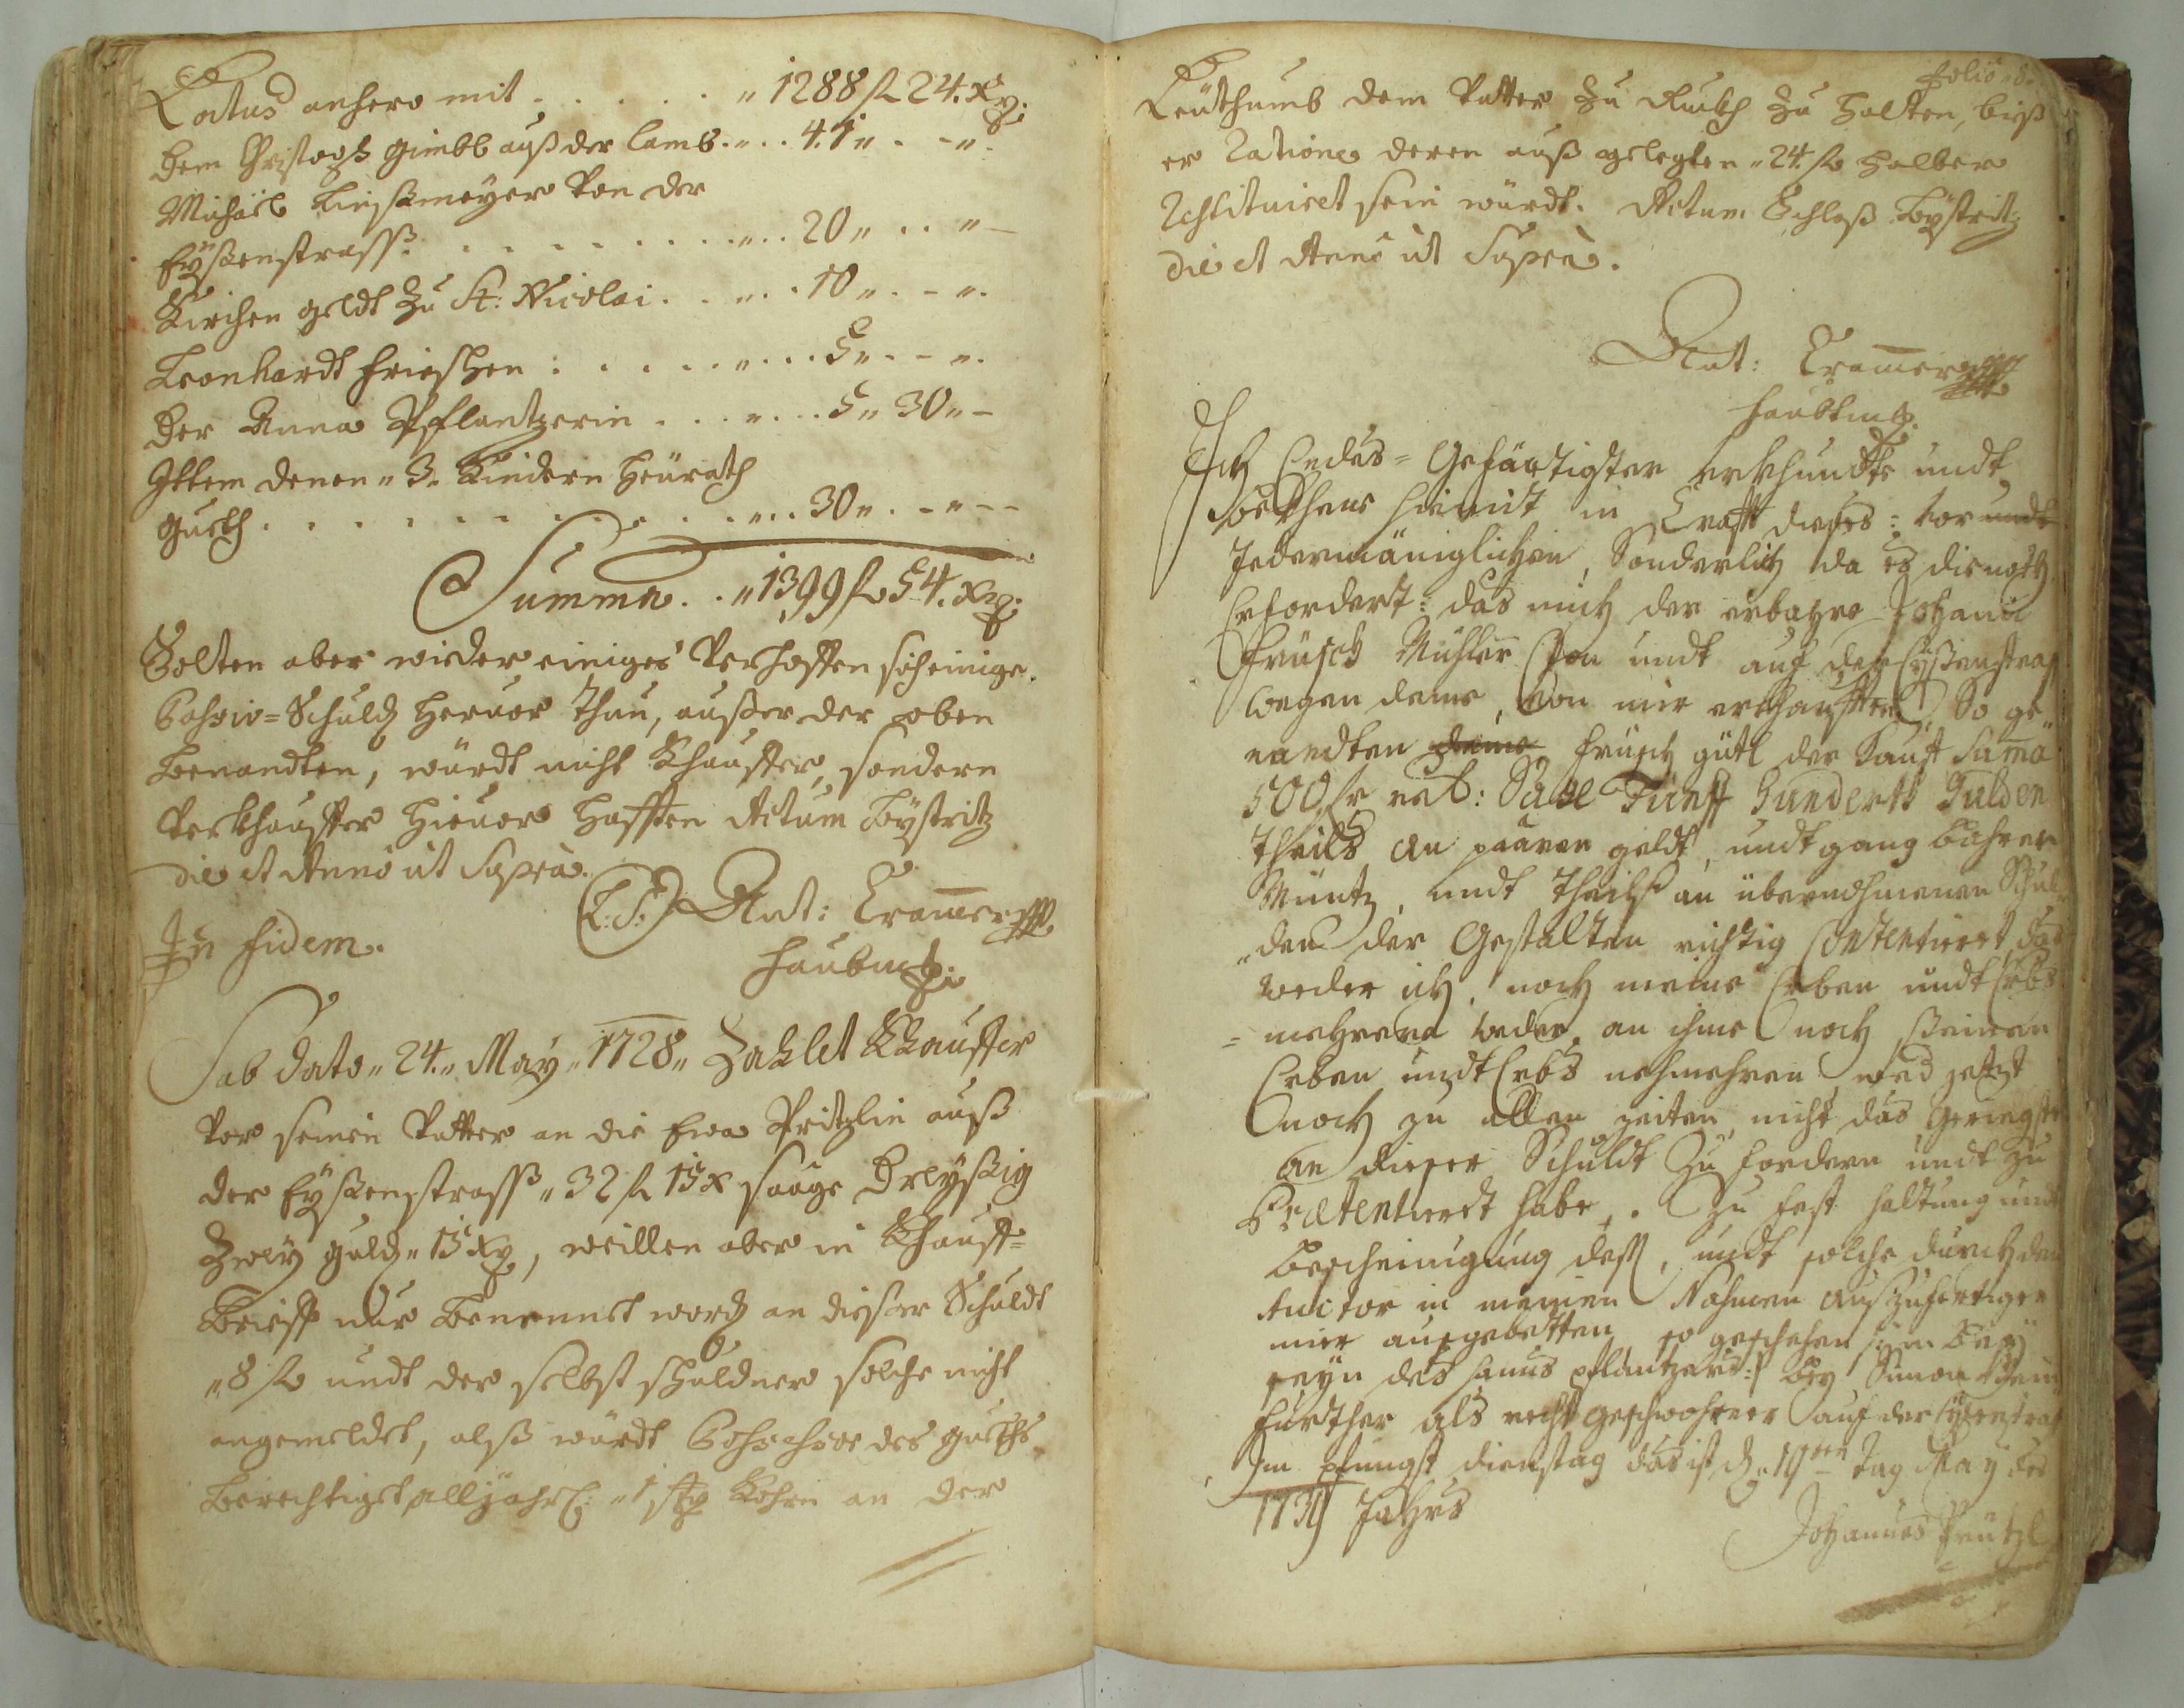 Latus anhero mit . . . . . " 1288 fl 24. Xr.
Dem Christoph Gimbl auß der Camb. " . . 41 " . - " .
Michael Linßmeyer Von der
Eyßenstraß . . . . . . . . . " . . 20 " . . " -
Kirchen geldt Zu St: Nicolai . . " . . 10 " . - " .
Leonhardt Frischen : . . . . " . . . 5 " . - " .
Der Anna Pflantzerin . . . " . . . 5 " 30 " -
Ittem denen " 3. Kindern Heürath
gueth . . . . . . . . . . . " . . 30 " . - " - -
Summa . . " 1399 fl 54. Xr.
Solten aber wieder einiges Verhoffen sich einige
Schuld hervor thun, außer der oben
benandten, würdt nicht Khauffer, sondern
Verkhauffer hievor hafften Actum Bystritz
die et Anno ut Supra.
(L: S:) Ant: Crammer
In fidem.
Haubtm:
Sub dato " 24. " May " 1728 " Zahlet Khauffer
Vor seinen Vatter an die Eva Pritzlin auß
der Eyßenstraß " 32 fl 13 x saage Dreyßig
Zwey guld " 13 Xr, weillen aber in Khauff=
Brieff nur benennet word an dießer Schuldt
" 8 fl undt der selbst schuldner solche nicht
angemeldet, alß würdt des gueths
berechtiget, alljährl: " 1 Kohrn an der
folio " 8.
dem Vatter Zu Zu halten, biß
er Ratione deren auß gelegten " 24 fl halber
Restituiret sein würdt. Actum Schloß Bystritz
die et Anno ut Supra.
Ant: Crammer
Haubtm.
Ich Endes = Gefärtigter Urkhundte undt
bekhene hiemit in Crafft dießes : vor undt
Jedermäniglichen, Sonderlich da es die noth
Erfordert : das mich der erbahre Johann
Früsch Mühler Von undt auf der Eyßenstraß
wegen deme, von mir erkhaufften, So ge=
nandten deme Früsch gütl der Kauf Suma
500 fl : Sage Fünff Hundertt Gulden
theils an paaren geldt, undt gang bahrer
Müntz, undt theilß an übernohmenen Schul
= den der Gestalten richtig Contentiert, das
weder ich, noch meine Erben undt Erbs
= nehmern weder an ihme noch seinen
Erben undt Erbs nehmeren, wed jetzt
noch zu allen zeiten, nicht das Geringste
an dießer Schuldt Zu fordern undt zu
Praetentiert habe, . Zu fest haltung undt
bescheinigung deß, undt solche durch den
Auctor in meinen Nahmen auszufertigen
mir ausgebetten, so geschehen im bey
seyn des Hanns Pflantzers : bey Simon
Further als recht geschwohrner auf der Eyßenstraß
Im pfingst dienstag das ist d. 19ten tag May des
Jahrs
Johannes Prützl